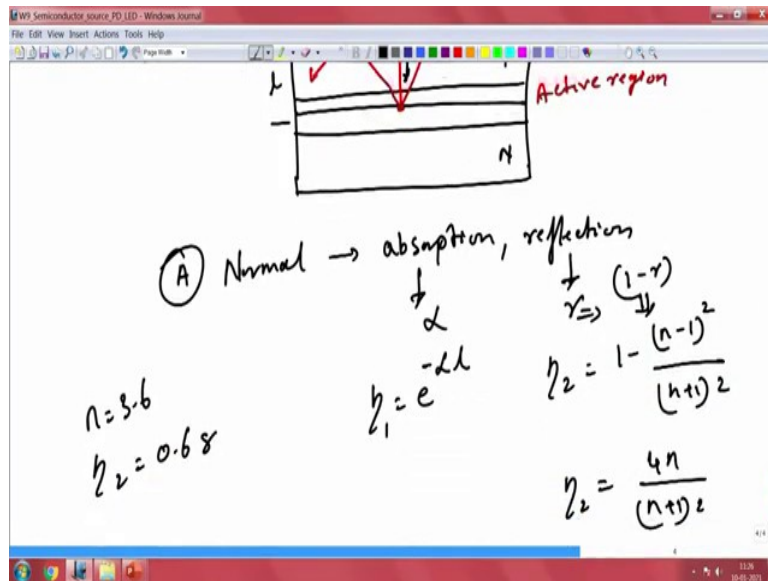 W9_Semiconductor_source_PD_LED - Windows Journal
File Edit View Insert Actions Tools Help
Page Width
B
l
Active region
N
A Normal → absorption, reflection
α r ⇒ (1-r)
η₁ = e^-αl
η₂ = 1 - (n-1)²/(n+1)²
n = 3.6
η₂ = 0.68
η₂ = 4n/(n+1)²
4/4
4
11:26
10-01-2021